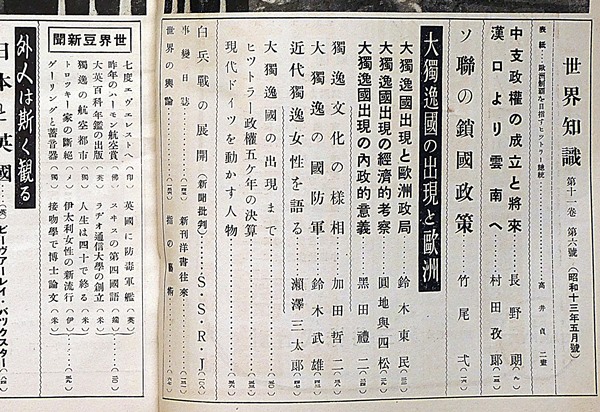 世界知識 第十一卷 第六號 (昭和十三年五月號)
表紙…歐洲制覇を目指すヒットラー總統……高井貞二畫
中支政權の成立と將來……長野朗
漢口より雲南へ……村田孜郎
ソ聯の鎖國政策……竹尾弌
大獨逸國の出現と歐洲
大獨逸國出現と歐洲政局……鈴木東民
大獨逸國出現の經濟的考察……圓地與四松
大獨逸國出現の內政的意義……黑田禮二
獨逸文化の樣相……加田哲二
大獨逸の國防軍……鈴木武雄
近代獨逸女性を語る……瀨澤三太郞
大獨逸國の出現まで
ヒットラー政權五ケ年の決算
現代ドイツを動かす人物
白兵戰の展開(新聞批判)……S・S・R・J
事變日誌
新刊洋書往來
世界の輿論
世界豆新聞
七度エヴェレストへ(印)
昨年のハーモン航空賞(佛)
大英百科年鑑の出版(英)
獨逸の航空都市(獨)
トロツキー家の斷絕
ゲーリングと蓄音器(獨)
英國に防毒軍艦(英)
スヰスの第四國語(瑞)
ラヂオ通信大學の創立(米)
人生は四十で終る(米)
伊太利女性の新流行(伊)
接吻學で博士論文(米)
外人は斯く觀る
日本と英國…(英)ビーヴアーレイ・バックスター